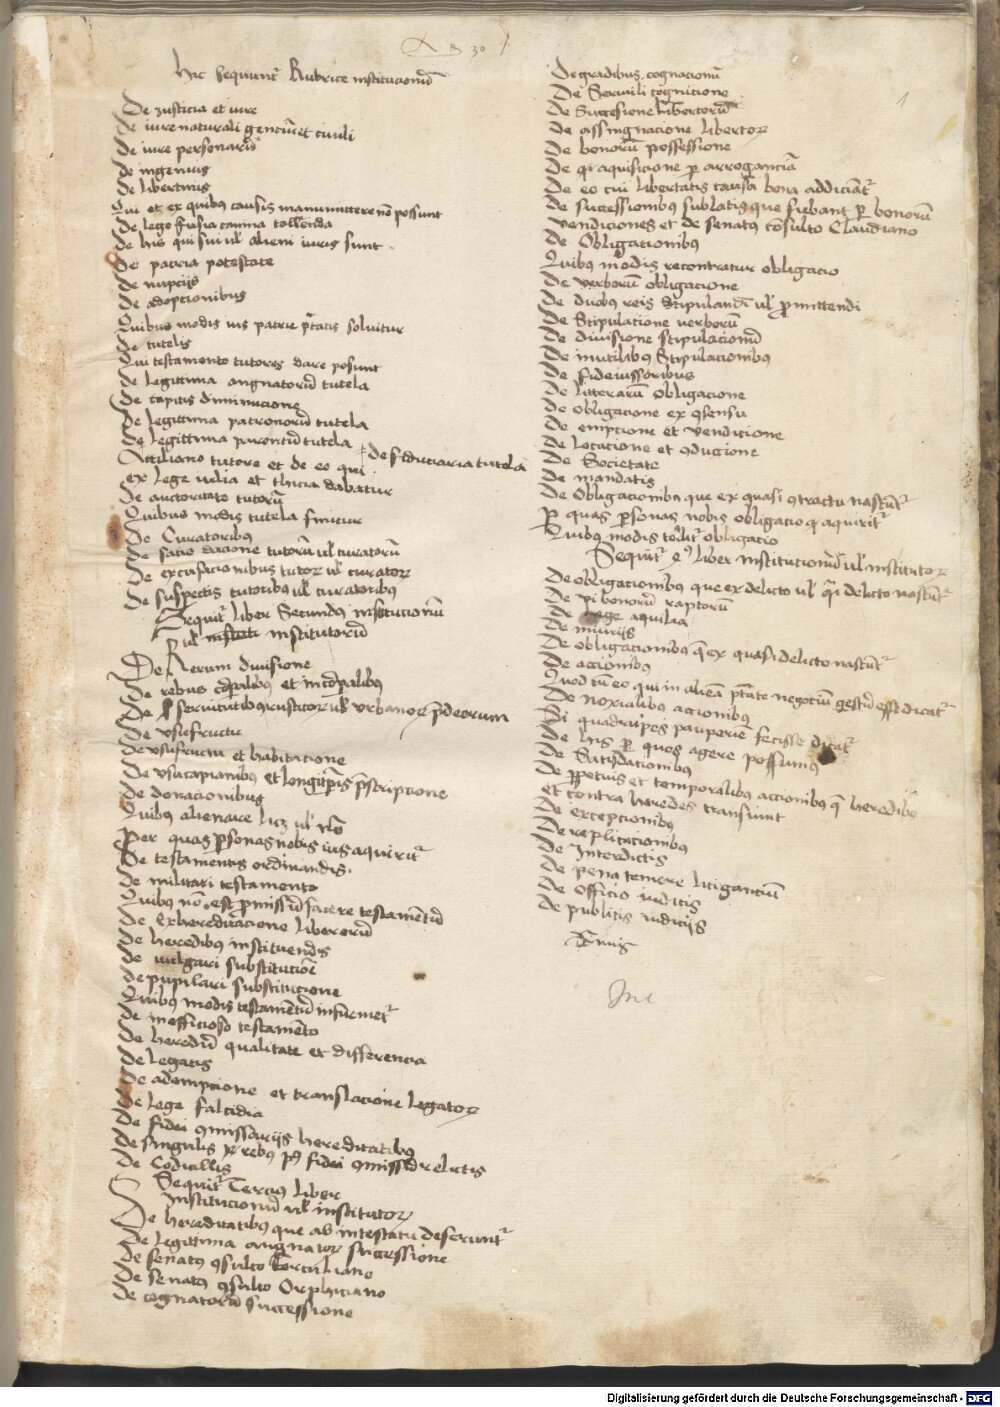 Hic sequuntr Rubrice institucionu
De iusticia et iure
De iure naturali genciu et ciuili
De iure personaru
De ingenuis
De libertinis
Qui et ex quibus causis manumittere no possunt
De lege fusia canina tollenda
De his qui sui ul alieni iuris sunt
De patria potestate
De nuptijs
De adoptionibus
Quibus modis ius patrie ptatis soluitur
De tutelis
Qui testamento tutores dare possunt
De legittima angnatoru tutela
De capitis diminucione
De legittima patronoru tutela
De legittima parentu tutela
De fiduciaria tutela
Attiliano tutore et de eo qui
ex lege iulia et ticia dabatur
De auctoritate tutoru
Quibus modis tutela finitur
De Curatoribus
De satis dacione tutoru ul curatoru
De excusacionibus tutor ul curator
De suspectis tutoribus ul curatoribus
Sequitr liber Secundus institucionu
ul institutoru
De Rerum diuisione
De rebus corpalibus et incorpalibus
De seruitutibus rusticor ul vrbanor predeorum
De vsufructu
De vsufructu et habitacione
De vsucapianibus et longi tpis pscriptione
De donacionibus
Quibus alienare licz ul no
Per quas psonas nobis ius aquiritr
De testamentis ordinandis
De militari testamento
Quibus no est pmissu facere testamentu
De exhereditacione liberoru
De heredibus instituendis
De vulgari substitucioe
De pupilari substitucione
Quibus modis testamentu infirmetr
De inofficioso testamento
De heredu qualitate et differencia
De legatis
De ademptione et translacione legator
De lege falcidia
De fidei 9missarijs hereditatibus
De singulis rebus p fidei 9missu relictis
De Codicillis
Sequitr Tercius liber
Institucionu ul institutor
De hereditatibus que ab intestatu deferuntr
De legittima angnator successione
De senatus 9sulto Tertuliano
De senatus 9sulto Orphiciano
De cognatoru successione
De gradibus cognacionu
De Seruili cognitione
De Successione libertoru
De assingnacione libertor
De bonoru possessione
De aquisicione p arroganciam
De eo cui libertatis causa bona addiciatr
De successionibus sublatis que fiebant p bonoru
vendiciones et de senatus consulto Claudiano
De Obligationibus
Quibus modis recontratur obligacio
De verboru obligacione
De duobus reis stipulandi ul pmittendi
De Stipulatione verboru
De diuisione stipulacionu
De inutilibus Stipulacionibus
De fideiussoribus
De litteraru obligacione
De obligacione ex 9sensu
De emptione et vendicione
De locatione et 9duccione
De Societate
De mandatis
De Obligacionibus que ex quasi 9tractu nascutr
p quas psonas nobis obligatio aquiritr
Quibus modis tollitr obligacio
Sequitr liber institucionu ul institutor
De obligacionibus que ex delicto ul delicto nascutr
De vi bonoru raptoru
De lege aquilia
De iniurijs
De obligacionibus q ex quasi delicto nascutr
De accionibus
Quod cu eo qui in aliea ptate negotiu gestu esse dicatr
De noxialibus actionibus
Si quadrupes pauperie fecisse dicatr
De his p quos agere possumus
De Satisdationibus
De ppetuis et temporalibus accionibus q heredibus
et contra heredes transiunt
De exceptionibus
De replicacionibus
De Interdictis
De pena temere litigantiu
De officio iudicis
De publicis iudicijs
1
Digitalisierung gefördert durch die Deutsche Forschungsgemeinschaft - DFG